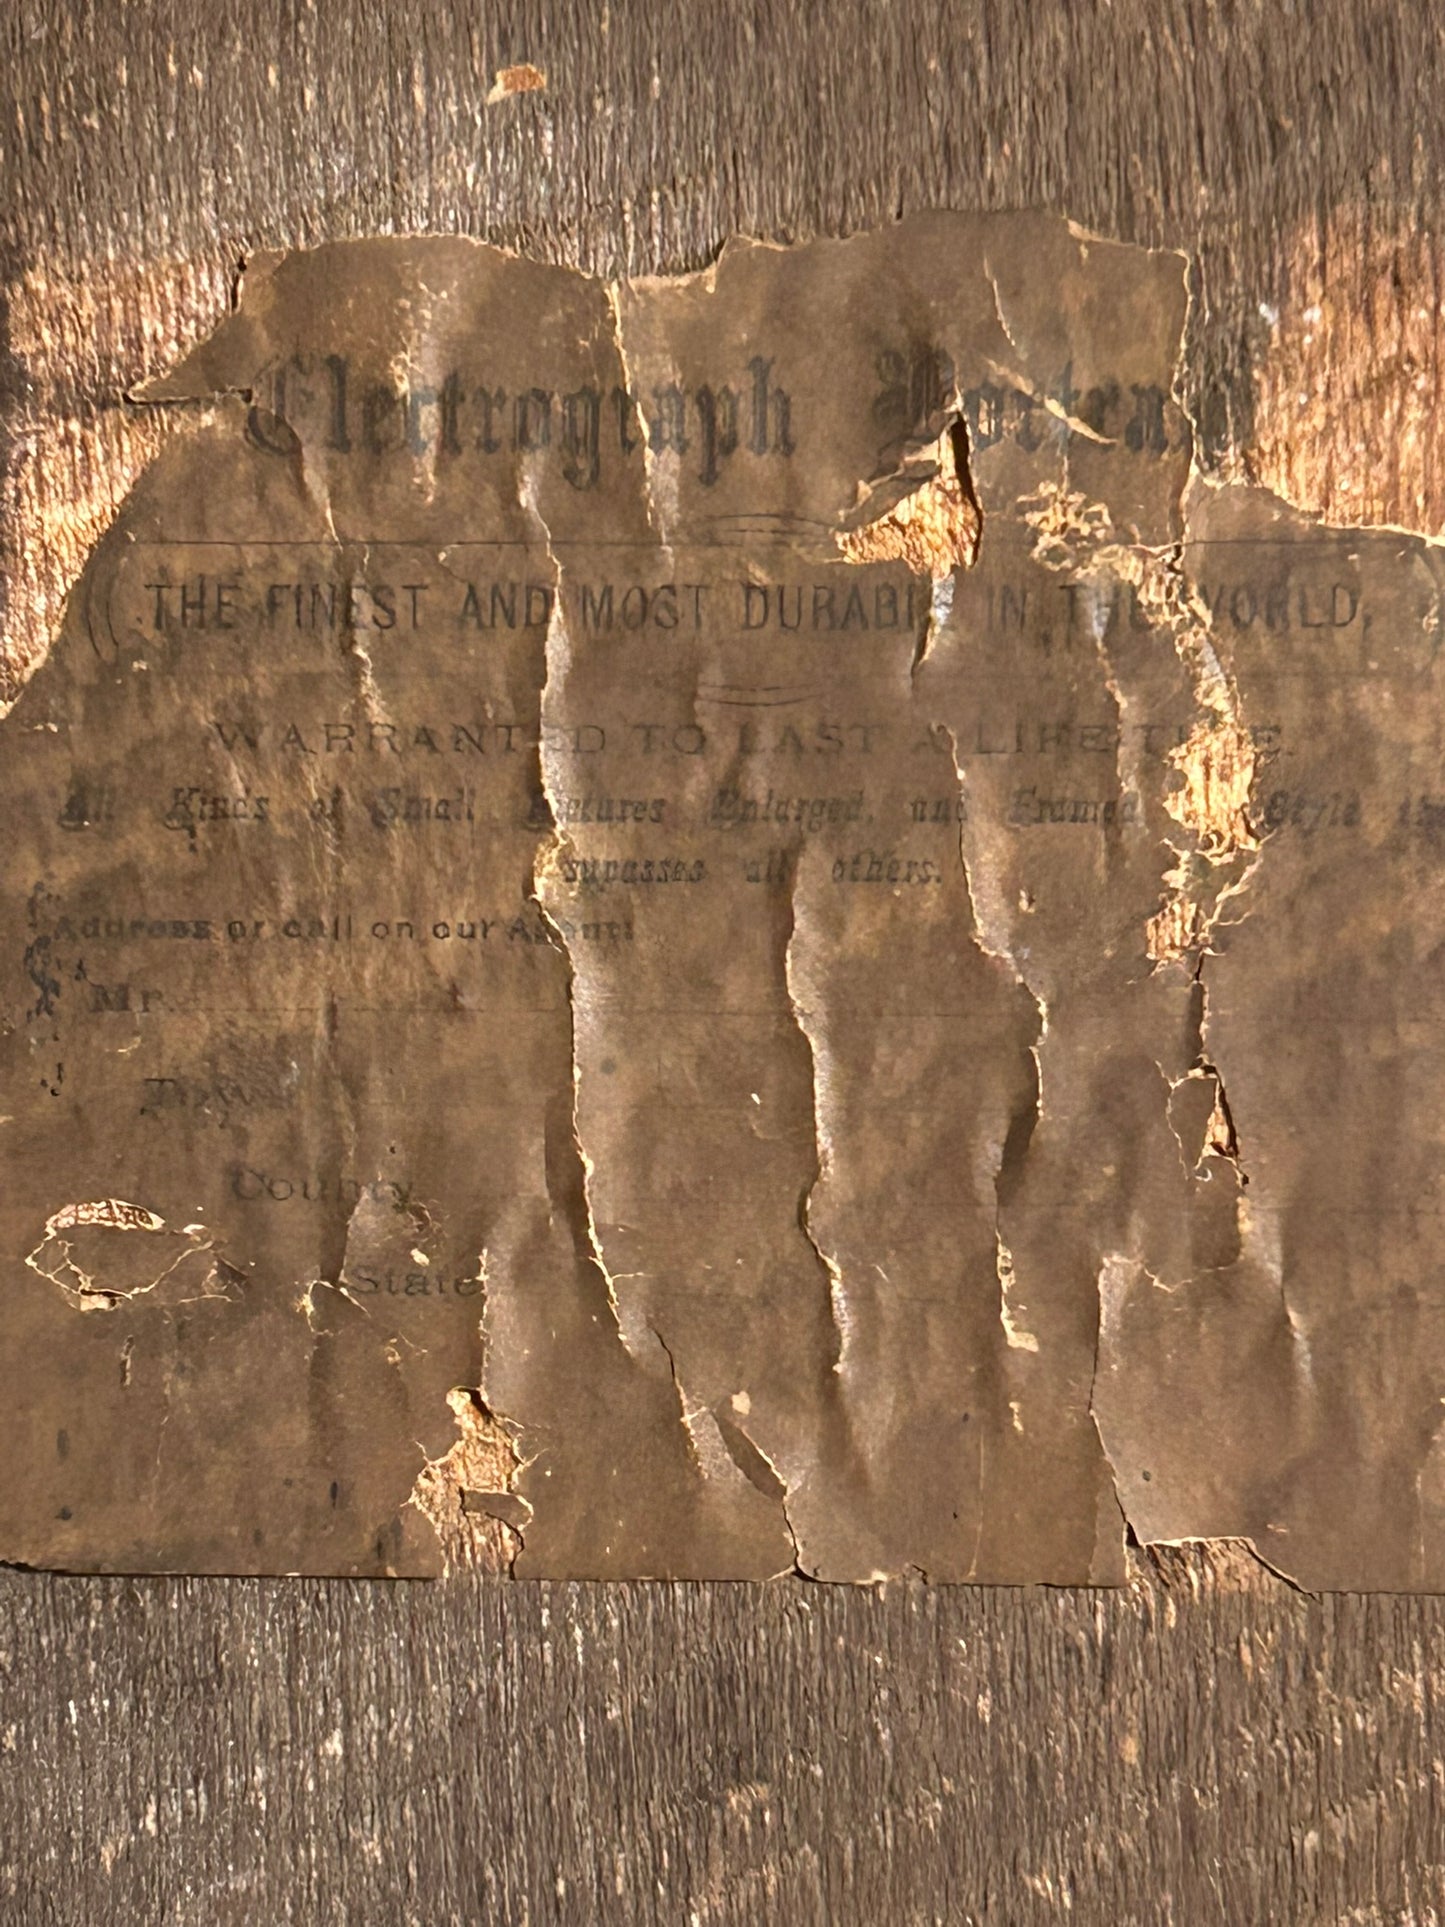 Electrograph Portra
THE FINEST AND MOST DURABLE IN THE WORLD,
WARRANTED TO LAST A LIFE TIME.
All Kinds of Small Pictures Enlarged, and Framed Style th
supasses all others.
Address or call on our Agent:
Mr.
Town
County
State